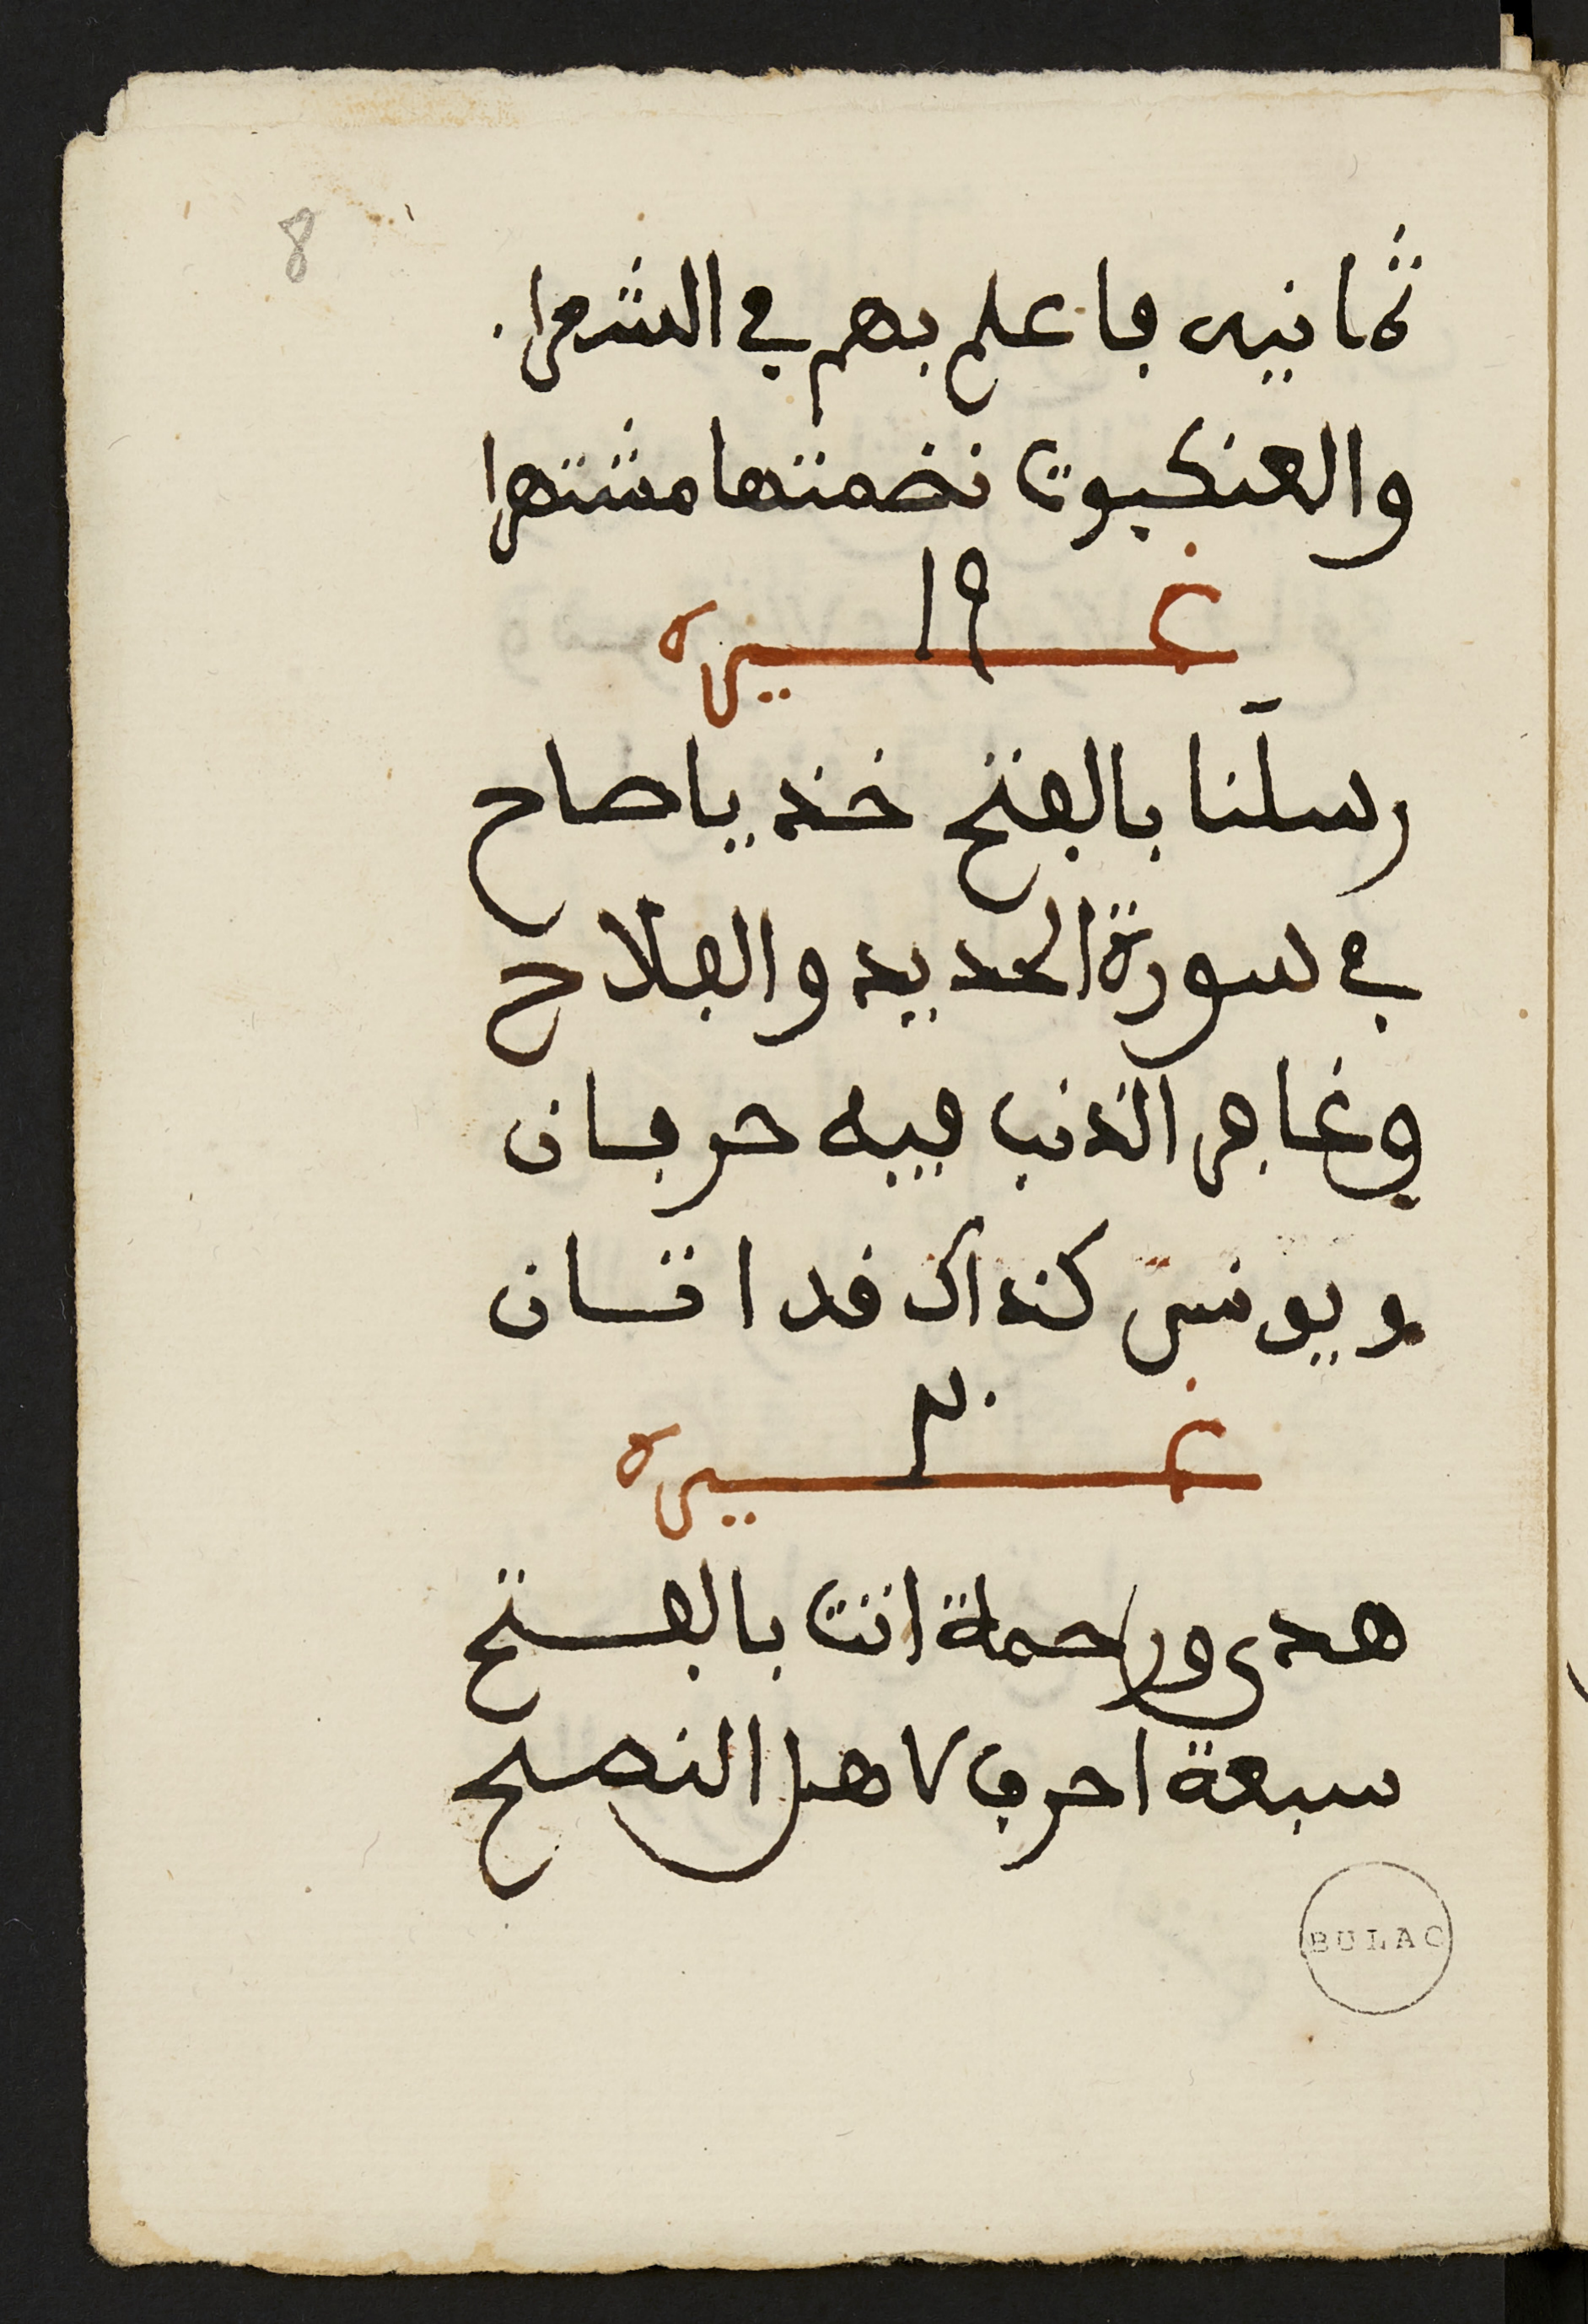 8
ثمانيں فاعلم بهم في الشعرا.
والعنكبوت نضمتها مشتهرا
19
غيره
رسلَنا بالفتح خذ ياصاح
في سورة الحديد والفلاح
وغافر الذنب فيه حرفان
ويونس كذاك قد اتسان
غيره
هدى ورحمة اتت بالفتح
سبعة احرف لاهل النصح
BULAC